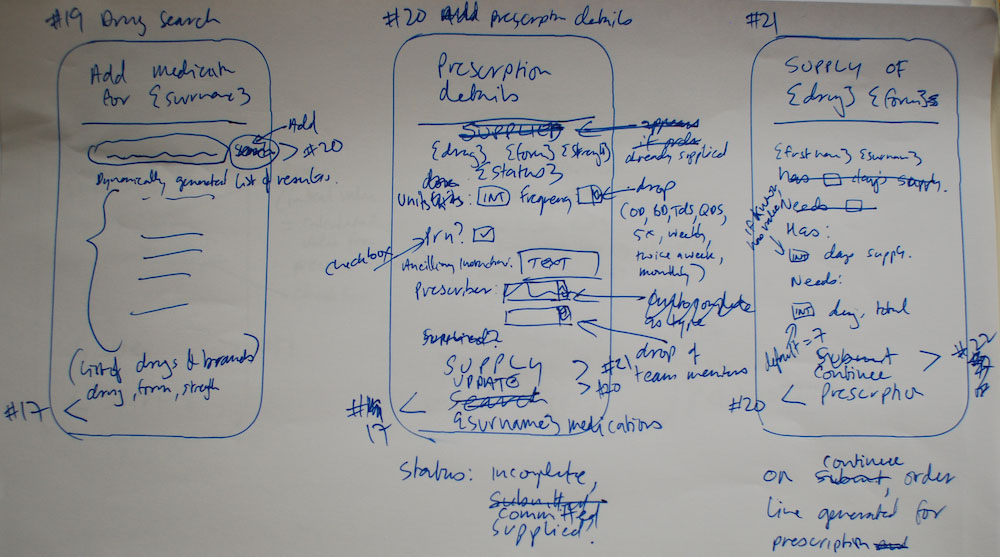 #19 Drug search
Add medicatn
for {surname}
Add
Search
> #20
Dynamically generated list of results.
(List of drugs & brands)
drug, form, strength
#17 <
#20 Add prescriptn details
Prescription
details
SUPPLIED
appears
if order
already supplied
{drug} {form} {strength}
{status}
Units: INT Frequency
drop
(OD, BD, TDS, QDS,
5x, weekly,
twice a week,
monthly)
Prn?
checkbox
Ancilliary Instructions: TEXT
Prescriber:
autocomplete
as type
drop of
team members
Supplied?
SUPPLY > #21
UPDATE > #20
Search
#17 < {surname} medications
Status: incomplete,
Submitted,
committed
supplied.
#21
SUPPLY OF
{drug} {form}s
{first name} {surname}
has days supply.
Needs
Has:
INT days supply.
Needs:
INT day, total
default = 7
Submit
Continue > #22
#20 < Prescription
continue
on Submit, order
line generated for
prescription and